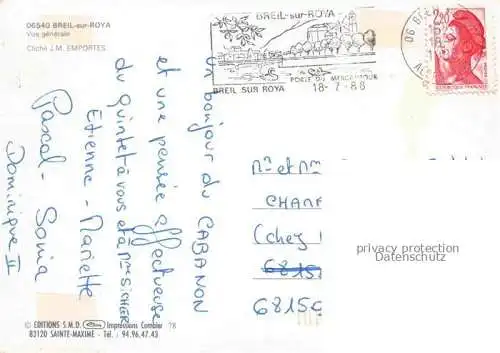 06540 BREIL-sur-ROYA
Vue générale
Cliché J.M. EMPORTES
BREIL-sur-ROYA
PORTE DU MERCANTOUR
BREIL SUR ROYA 18-7-88
06 BREIL
2,20
REPUBLIQUE FRANCAISE
un bonjour du CABANON
et une pensée affectueuse
du quintet à vous et à Mme SICHER
Etienne - Mariette
Pascal - Sonia
Dominique II
Mr et Mme
CHANF
(chez
6815
6815
privacy protection
Datenschutz
© EDITIONS S.M.D. Impressions Combier 78
83120 SAINTE-MAXIME - Tél. : 94.96.47.43